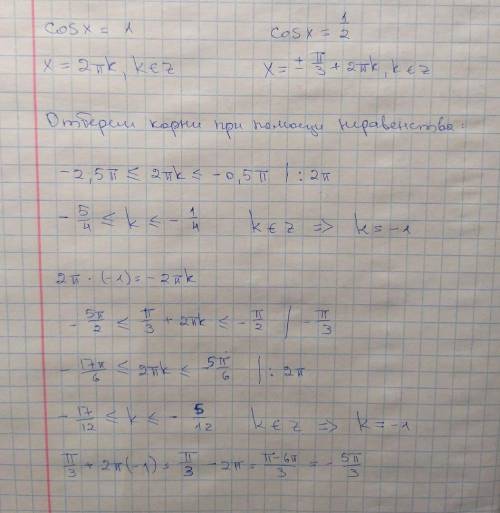 cosx = 1 cosx = 1/2
x = 2πk, k∈z x = ± π/3 + 2πk, k∈z
Отберем корни при помощи неравенства:
-2,5π ≤ 2πk ≤ -0,5π | : 2π
- 5/4 ≤ k ≤ - 1/4 k∈z => k = -1
2π · (-1) = -2πk
- 5π/2 ≤ π/3 + 2πk ≤ - π/2 | - π/3
- 17π/6 ≤ 2πk ≤ 5π/6 | : 2π
- 17/12 ≤ k ≤ - 5/12 k∈z => k = -1
π/3 + 2π(-1) = π/3 - 2π = π-6π/3 = - 5π/3